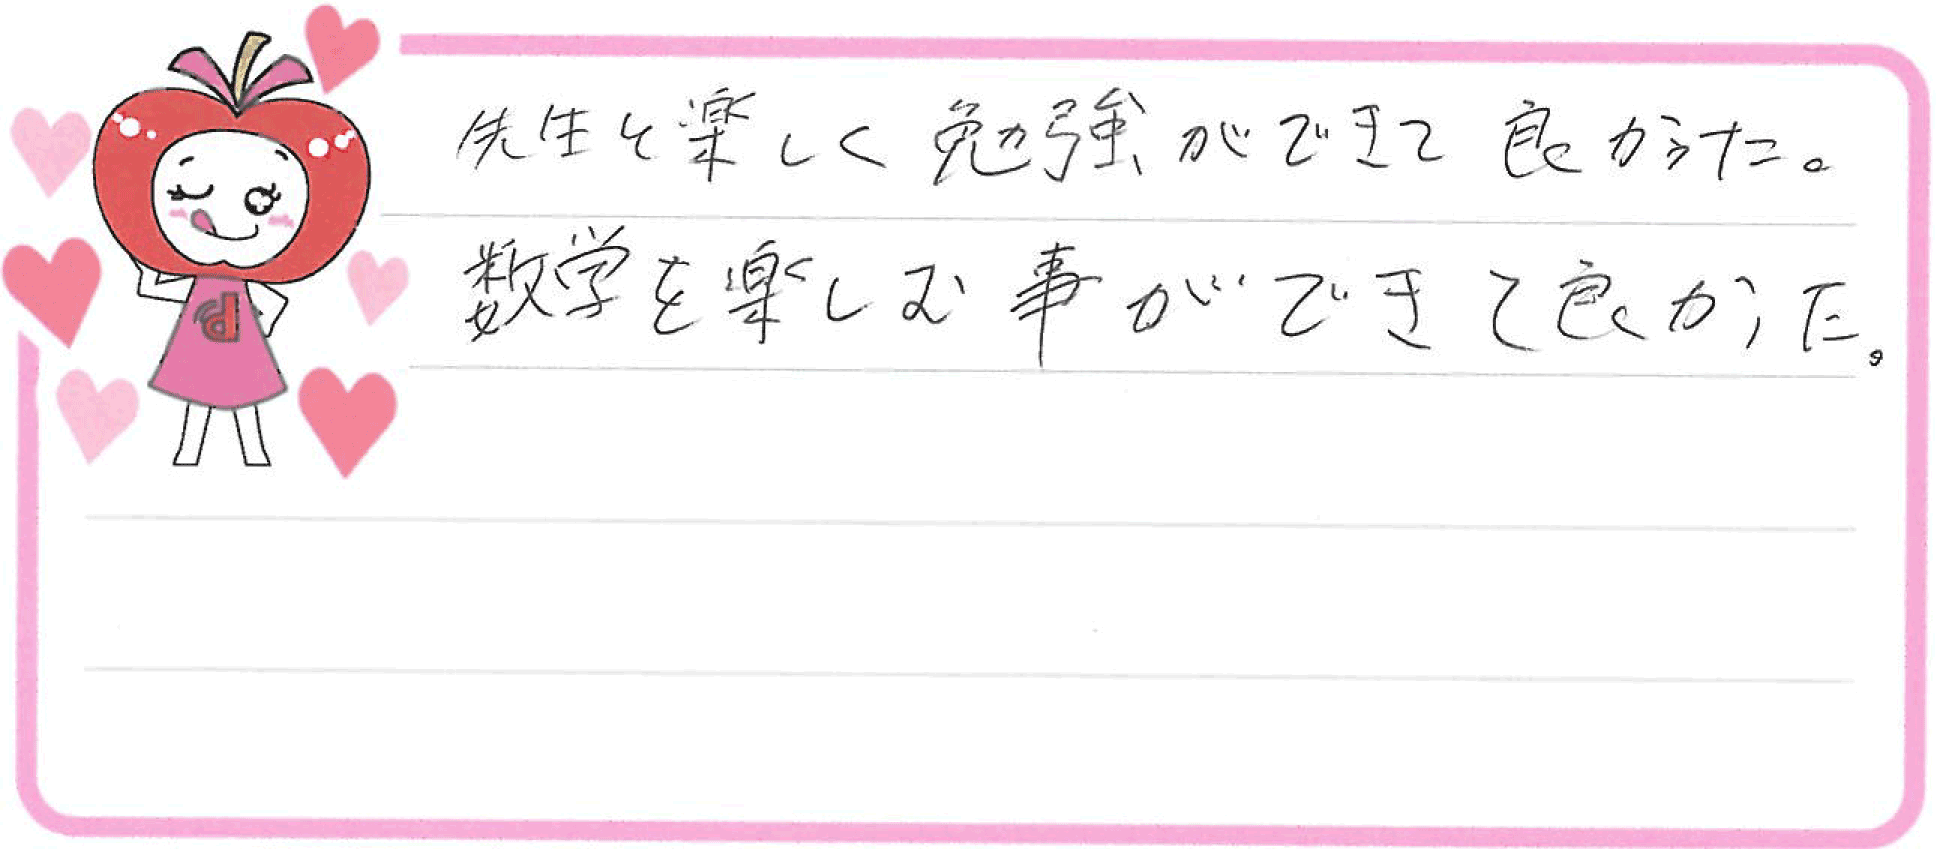 先生と楽しく勉強ができて良かった。
数学を楽しむ事ができて良かった。
d